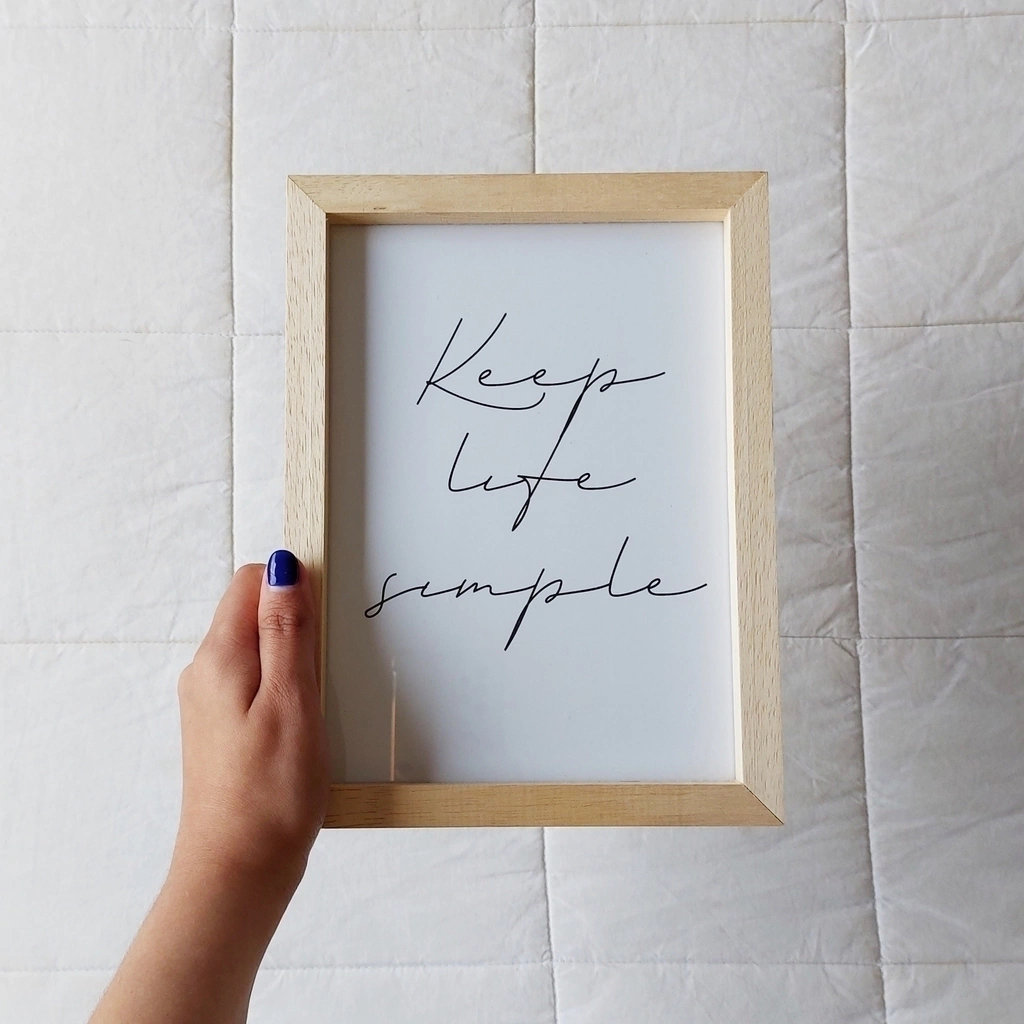 Keep
life
simple